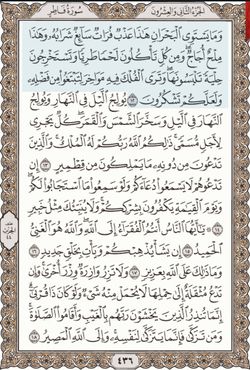 الجزء الثاني والعشرون
سورة فاطر
وَمَا يَسْتَوِي الْبَحْرَانِ هَٰذَا عَذْبٌ فُرَاتٌ سَائِغٌ شَرَابُهُ وَهَٰذَا
مِلْحٌ أُجَاجٌ وَمِن كُلٍّ تَأْكُلُونَ لَحْمًا طَرِيًّا وَتَسْتَخْرِجُونَ
حِلْيَةً تَلْبَسُونَهَا وَتَرَى الْفُلْكَ فِيهِ مَوَاخِرَ لِتَبْتَغُوا مِن فَضْلِهِ
وَلَعَلَّكُمْ تَشْكُرُونَ ١٢ يُولِجُ اللَّيْلَ فِي النَّهَارِ وَيُولِجُ
النَّهَارَ فِي اللَّيْلِ وَسَخَّرَ الشَّمْسَ وَالْقَمَرَ كُلٌّ يَجْرِي
لِأَجَلٍ مُّسَمًّى ذَٰلِكُمُ اللَّهُ رَبُّكُمْ لَهُ الْمُلْكُ وَالَّذِينَ
تَدْعُونَ مِن دُونِهِ مَا يَمْلِكُونَ مِن قِطْمِيرٍ ١٣ إِن
تَدْعُوهُمْ لَا يَسْمَعُوا دُعَاءَكُمْ وَلَوْ سَمِعُوا مَا اسْتَجَابُوا لَكُمْ
وَيَوْمَ الْقِيَامَةِ يَكْفُرُونَ بِشِرْكِكُمْ وَلَا يُنَبِّئُكَ مِثْلُ خَبِيرٍ
١٤ يَا أَيُّهَا النَّاسُ أَنتُمُ الْفُقَرَاءُ إِلَى اللَّهِ وَاللَّهُ هُوَ الْغَنِيُّ
الْحَمِيدُ ١٥ إِن يَشَأْ يُذْهِبْكُمْ وَيَأْتِ بِخَلْقٍ جَدِيدٍ ١٦
وَمَا ذَٰلِكَ عَلَى اللَّهِ بِعَزِيزٍ ١٧ وَلَا تَزِرُ وَازِرَةٌ وِزْرَ أُخْرَىٰ وَإِن
تَدْعُ مُثْقَلَةٌ إِلَىٰ حِمْلِهَا لَا يُحْمَلْ مِنْهُ شَيْءٌ وَلَوْ كَانَ ذَا قُرْبَىٰ
إِنَّمَا تُنذِرُ الَّذِينَ يَخْشَوْنَ رَبَّهُم بِالْغَيْبِ وَأَقَامُوا الصَّلَاةَ
وَمَن تَزَكَّىٰ فَإِنَّمَا يَتَزَكَّىٰ لِنَفْسِهِ وَإِلَى اللَّهِ الْمَصِيرُ ١٨
٤٣٦